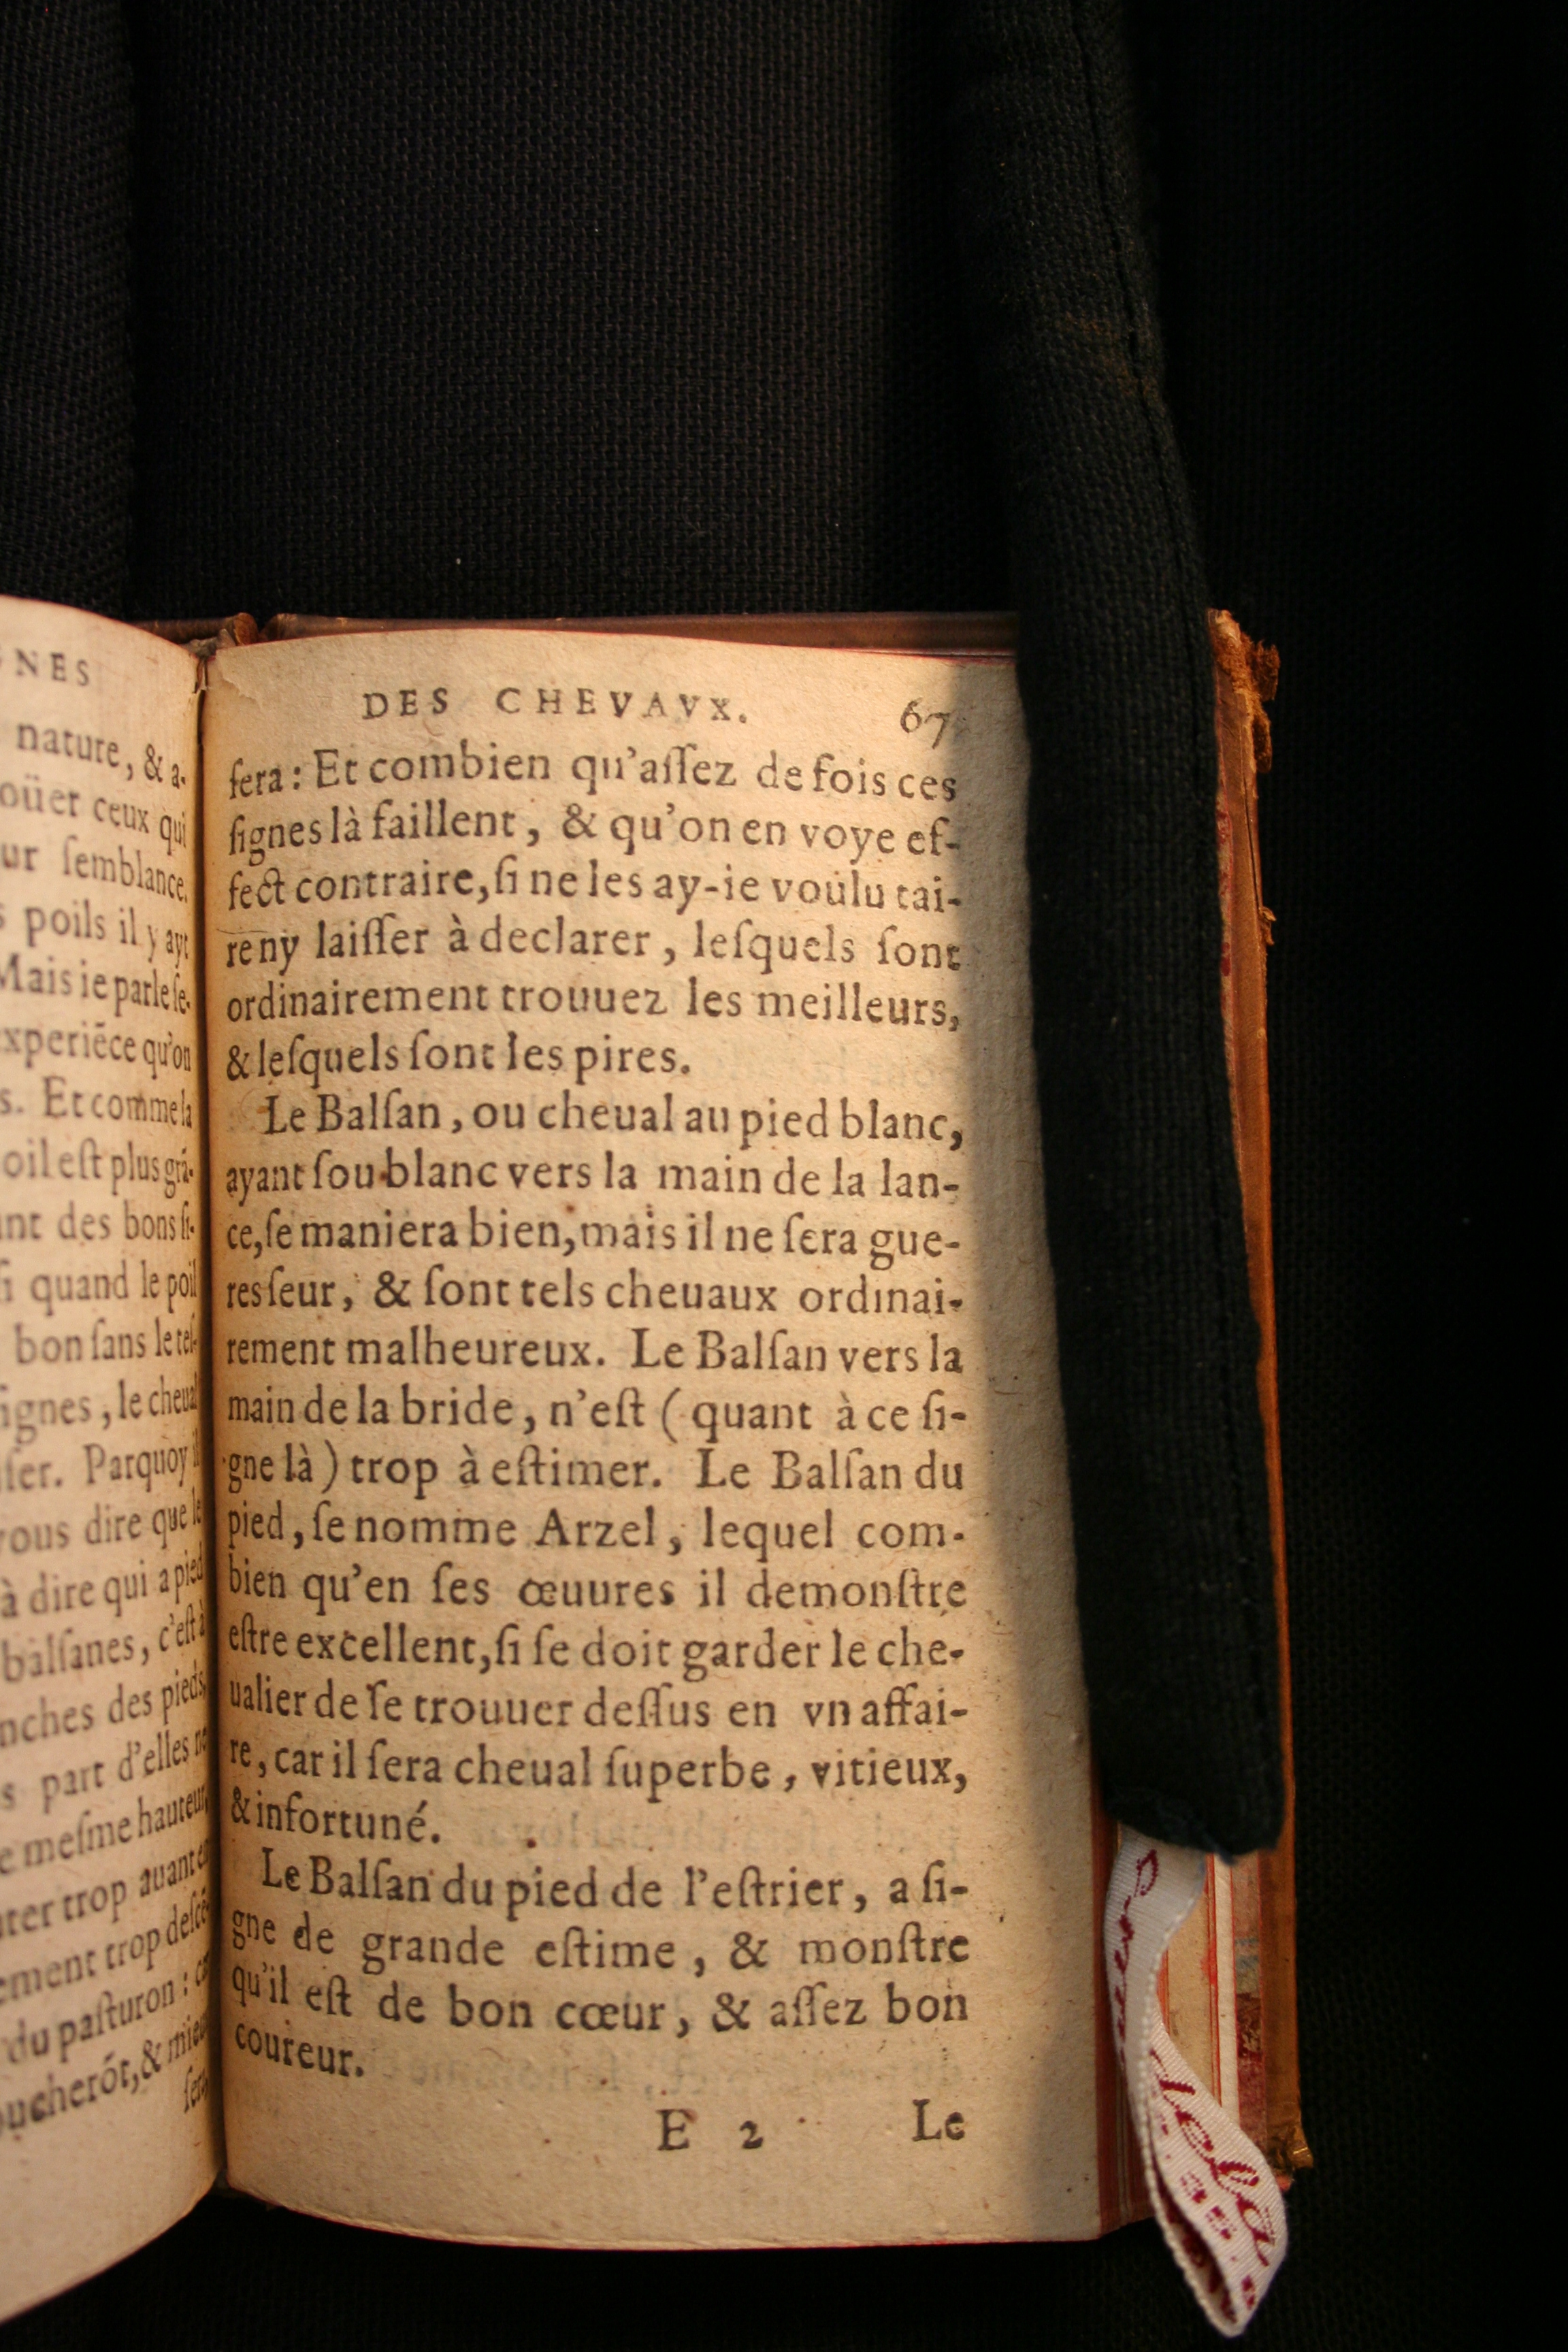 NES
nature, & a-
oüer ceux qui
ur ſemblance.
poils il y ayt
Mais ie parle ſe-
xperiēce qu'on
s. Et comme la
oil eſt plus grã-
nt des bons ſi-
ſi quand le poil
bon ſans le teſ-
ignes, le cheual
ſer. Parquoy il
vous dire que le
à dire qui a pied
balſanes, c'eſt à
nches des pieds,
s part d'elles ne
e meſme hauteur,
ter trop auant en
ement trop deſcē
du paſturon: car
oucherõt, & mieux
ſera
DES CHEVAVX. 67
ſera: Et combien qu'aſſez de fois ces
ſignes là faillent, & qu'on en voye ef-
fect contraire, ſi ne les ay-ie voulu tai-
re ny laiſſer à declarer, leſquels ſont
ordinairement trouuez les meilleurs,
& leſquels ſont les pires.
Le Balſan, ou cheual au pied blanc,
ayant ſou blanc vers la main de la lan-
ce, ſe maniera bien, mais il ne ſera gue-
res ſeur, & ſont tels cheuaux ordinai-
rement malheureux. Le Balſan vers la
main de la bride, n'eſt (quant à ce ſi-
gne là) trop à eſtimer. Le Balſan du
pied, ſe nomme Arzel, lequel com-
bien qu'en ſes œuures il demonſtre
eſtre excellent, ſi ſe doit garder le che-
ualier de ſe trouuer deſſus en vn affai-
re, car il ſera cheual ſuperbe, vitieux,
& infortuné.
Le Balſan du pied de l'eſtrier, a ſi-
gne de grande eſtime, & monſtre
qu'il eſt de bon cœur, & aſſez bon
coureur.
E 2 Le